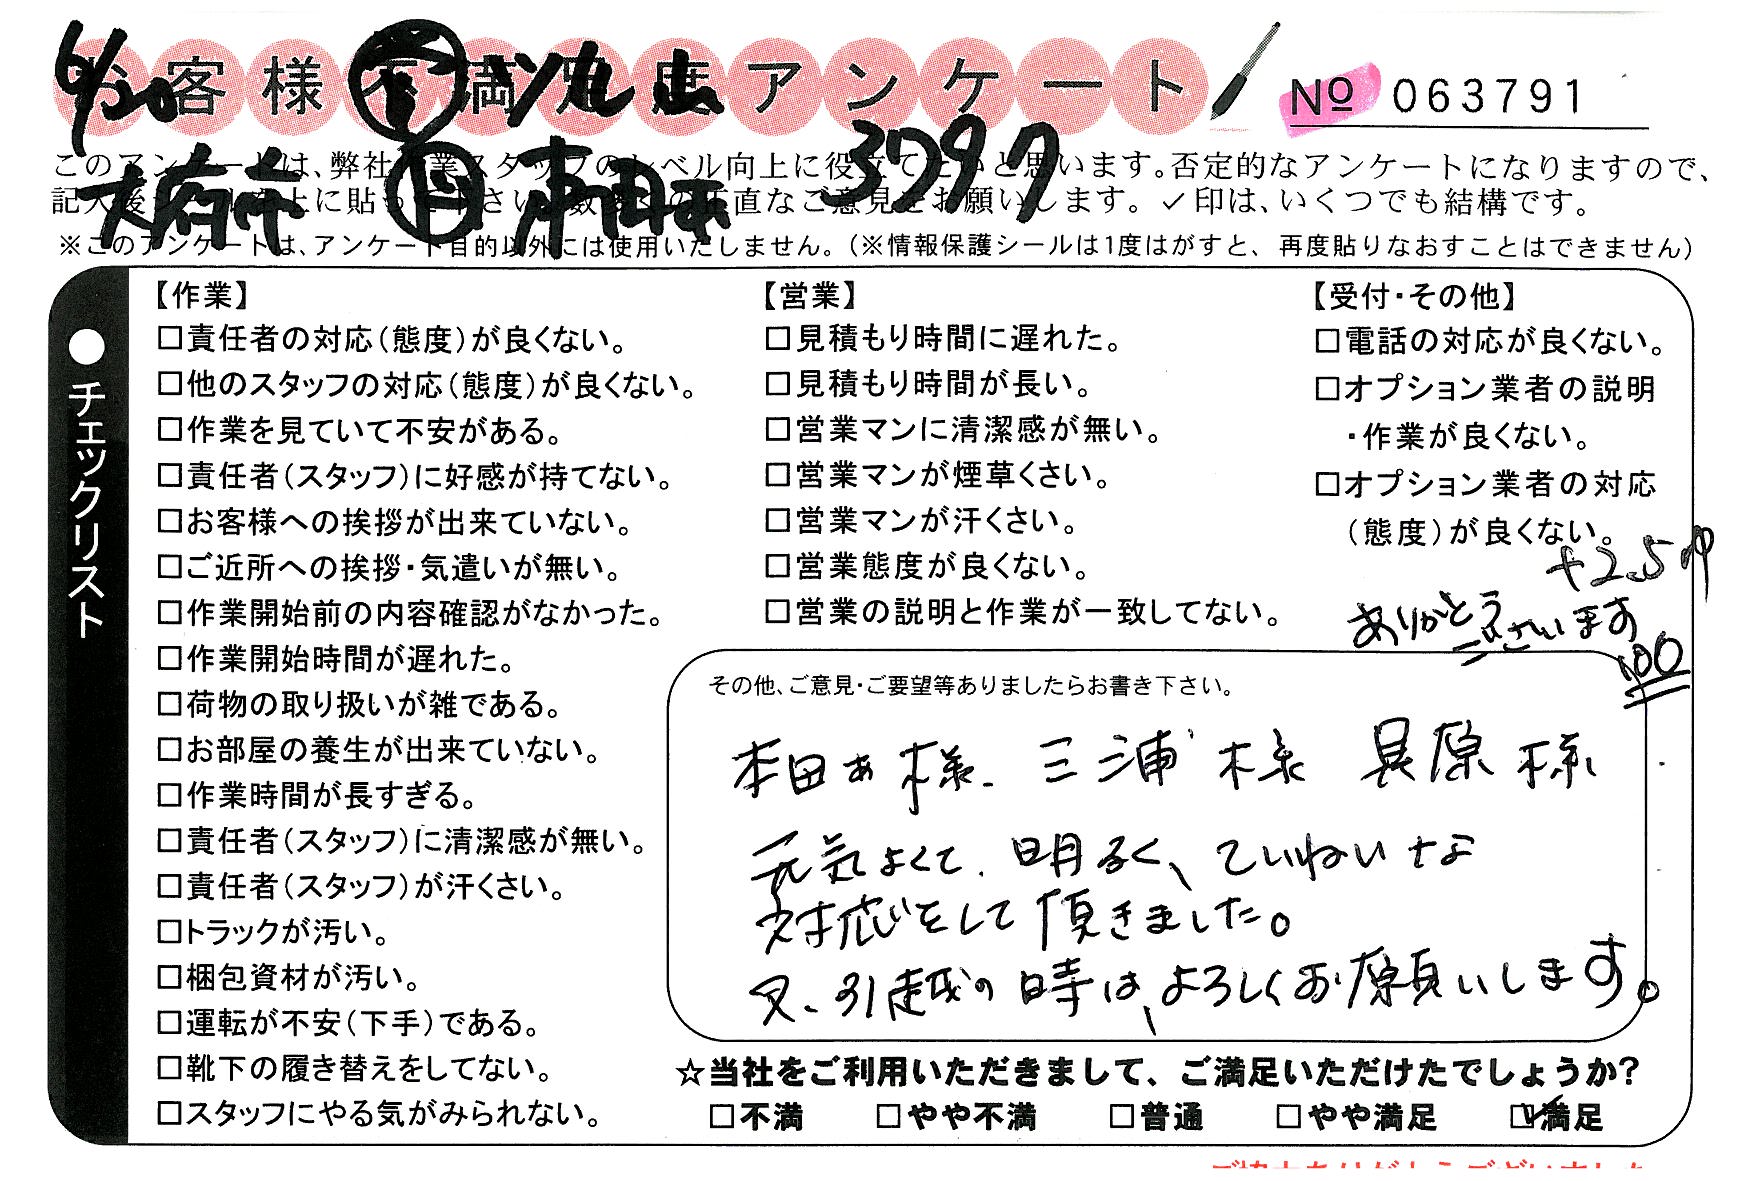 6/20
お客様不満足度アンケート
№ 063791
3797
大府市
このアンケートは、弊社作業スタッフのレベル向上に役立てたいと思います。否定的なアンケートになりますので、
記入後シールを上に貼って下さい。数多くの正直なご意見をお願いします。✓印は、いくつでも結構です。
※このアンケートは、アンケート目的以外には使用いたしません。（※情報保護シールは1度はがすと、再度貼りなおすことはできません）
●チェックリスト
【作業】
□責任者の対応（態度）が良くない。
□他のスタッフの対応（態度）が良くない。
□作業を見ていて不安がある。
□責任者（スタッフ）に好感が持てない。
□お客様への挨拶が出来ていない。
□ご近所への挨拶・気遣いが無い。
□作業開始前の内容確認がなかった。
□作業開始時間が遅れた。
□荷物の取り扱いが雑である。
□お部屋の養生が出来ていない。
□作業時間が長すぎる。
□責任者（スタッフ）に清潔感が無い。
□責任者（スタッフ）が汗くさい。
□トラックが汚い。
□梱包資材が汚い。
□運転が不安（下手）である。
□靴下の履き替えをしてない。
□スタッフにやる気がみられない。
【営業】
□見積もり時間に遅れた。
□見積もり時間が長い。
□営業マンに清潔感が無い。
□営業マンが煙草くさい。
□営業マンが汗くさい。
□営業態度が良くない。
□営業の説明と作業が一致してない。
【受付・その他】
□電話の対応が良くない。
□オプション業者の説明
・作業が良くない。
□オプション業者の対応
（態度）が良くない。
ありがとう
ございます
100
その他、ご意見・ご要望等ありましたらお書き下さい。
本田あ様、三浦様 貝原様
元気よくて、明るく、ていねいな
対応をして頂きました。
又、引越の時は、よろしくお願いします。
☆当社をご利用いただきまして、ご満足いただけたでしょうか？
□不満 □やや不満 □普通 □やや満足 ☑満足
ご協力ありがとうございました